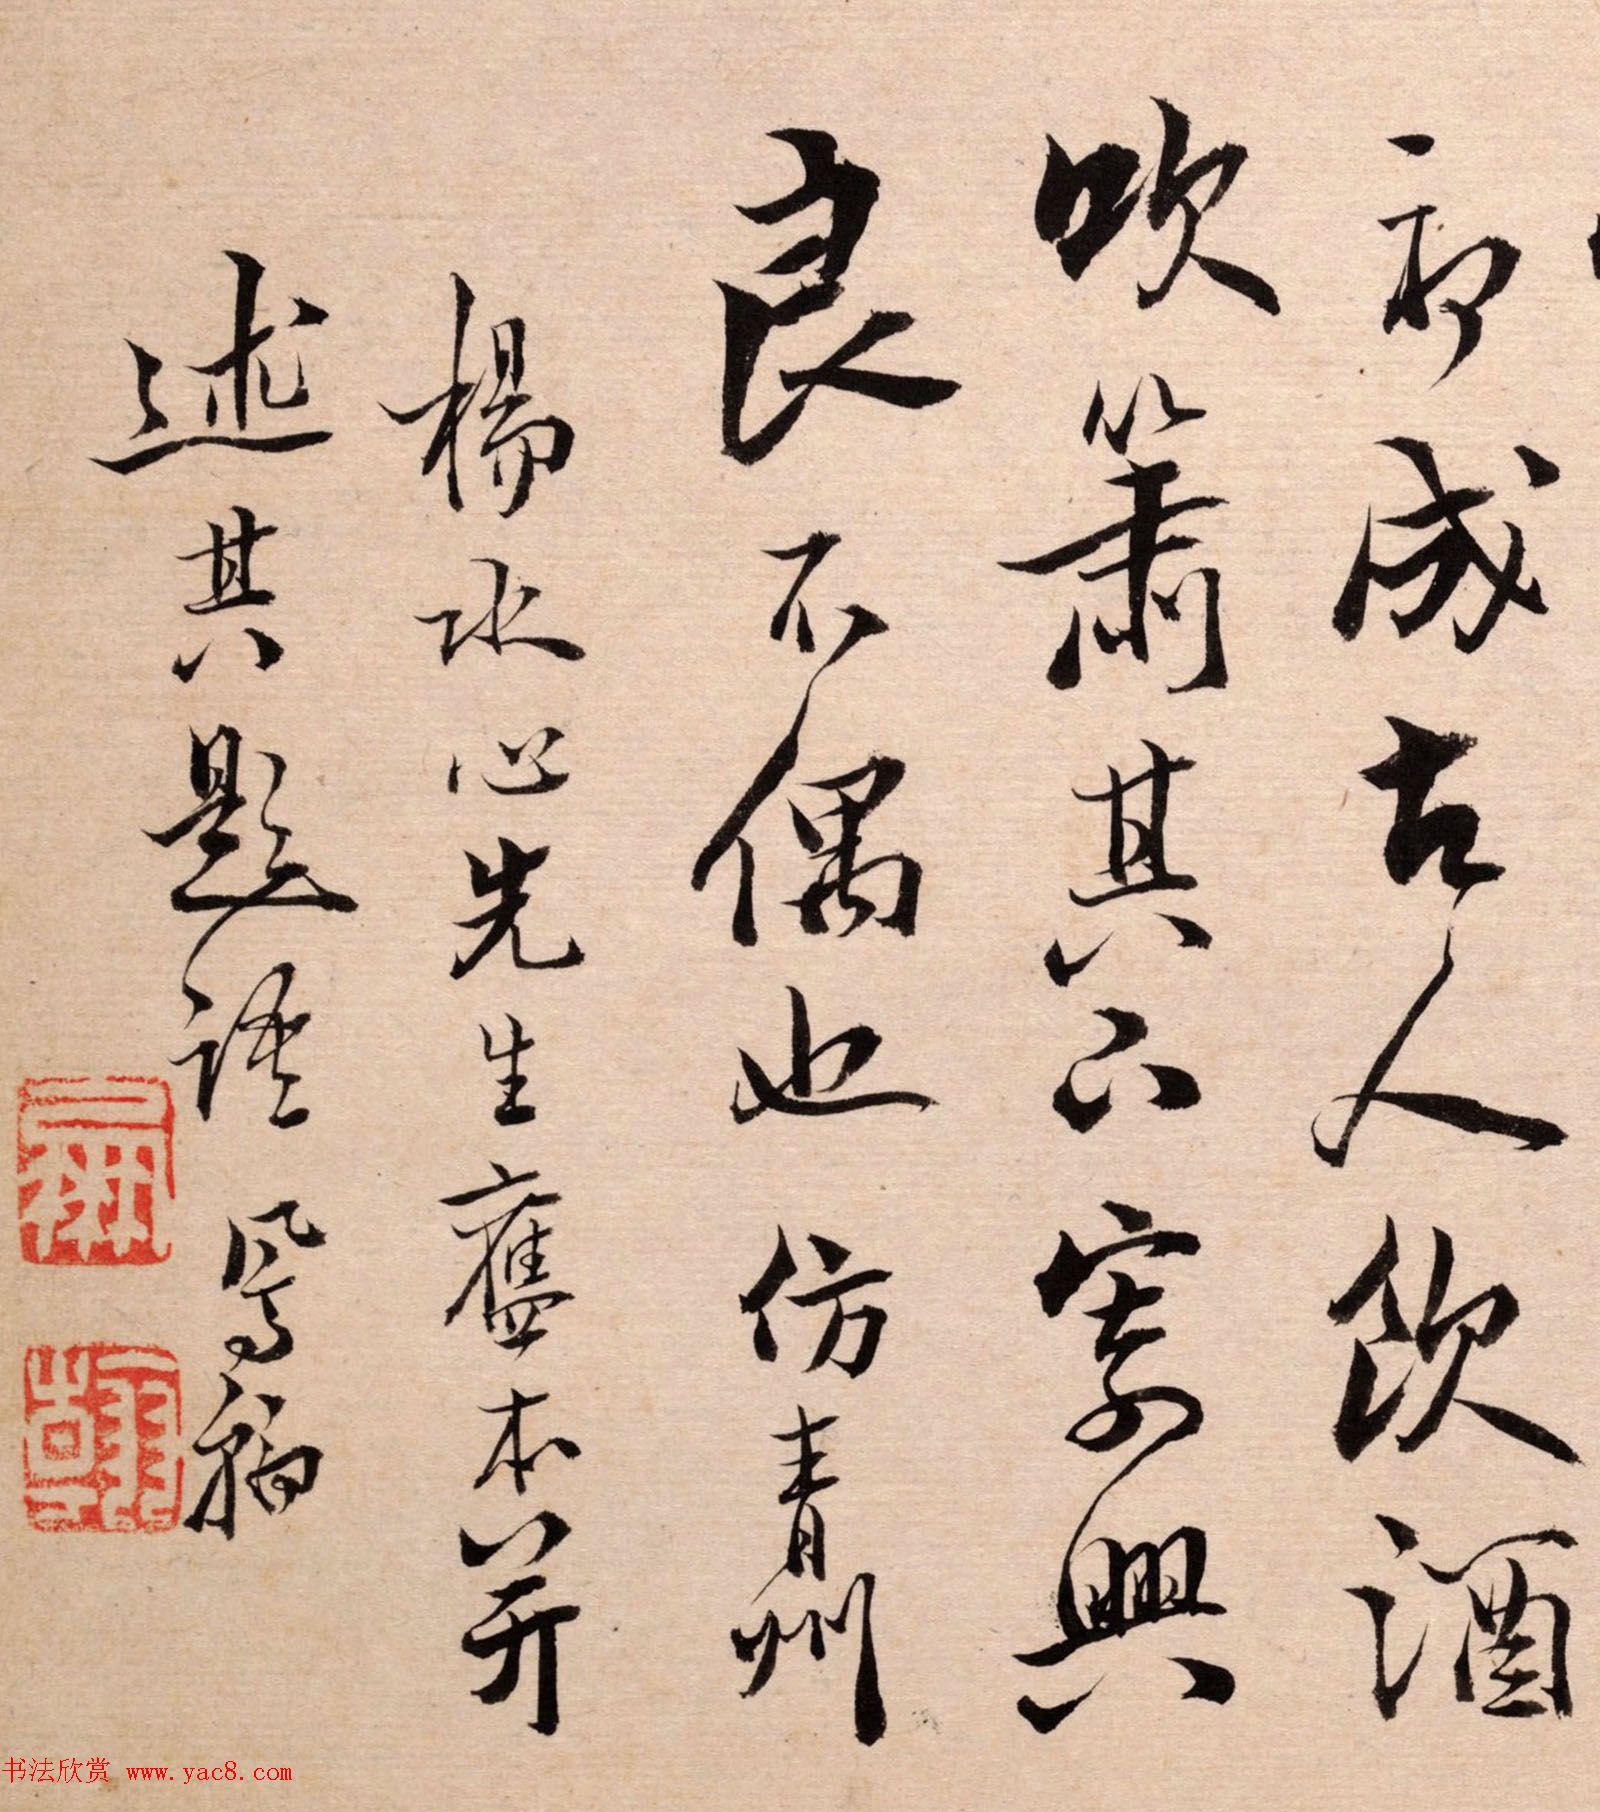 成古人飲酒
吹簫其下寄興
良不偶也 仿青州
楊水心先生舊本并
述其題語
书法欣赏 www.yac8.com